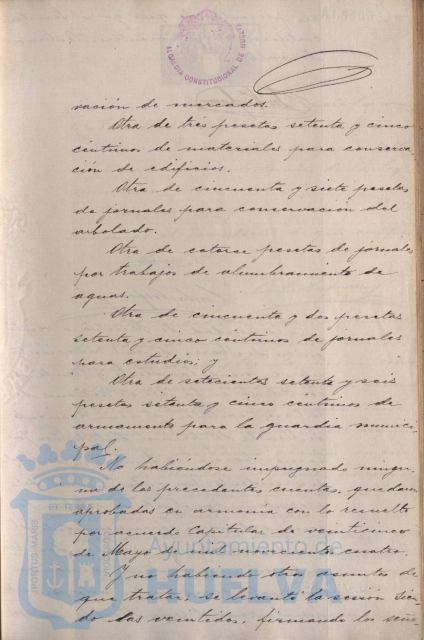 ALCALDIA CONSTITUCIONAL DE HUELVA
vación de mercados.
Otra de tres pesetas setenta y cinco
céntimos de materiales para conserva-
ción de edificios.
Otra de cincuenta y siete pesetas
de jornales para conservación del
arbolado.
Otra de catorse pesetas de jornales
por trabajos de alumbramiento de
aguas.
Otra de cincuenta y dos pesetas
setenta y cinco céntimos de jornales
para estudios; y
Otra de setecientas setenta y seis
pesetas setenta y cinco céntimos de
armamento para la guardia munici-
pal.
No habiéndose impugnado ningu-
na de las precedentes cuentas, quedaron
aprobadas en armonía con lo resuelto
por acuerdo Capitular de veinticinco
de Mayo de mil novecientos cuatro.
Y no habiendo otros asuntos de
que tratar, se levantó la sesión sien-
do las veintidos, firmando los seño-
PORTUS MARIS
Ayuntamiento de
HUELVA